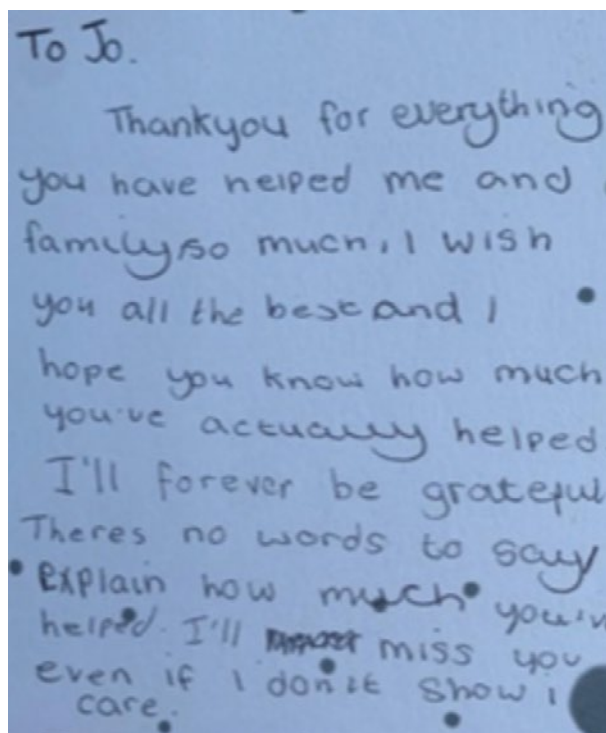 To Jo.
Thankyou for everything
you have helped me and
family so much, I wish
you all the best and I
hope you know how much
you've actually helped
I'll forever be grateful
Theres no words to say
explain how much
helped. I'll miss you
even if I don't show I
care.